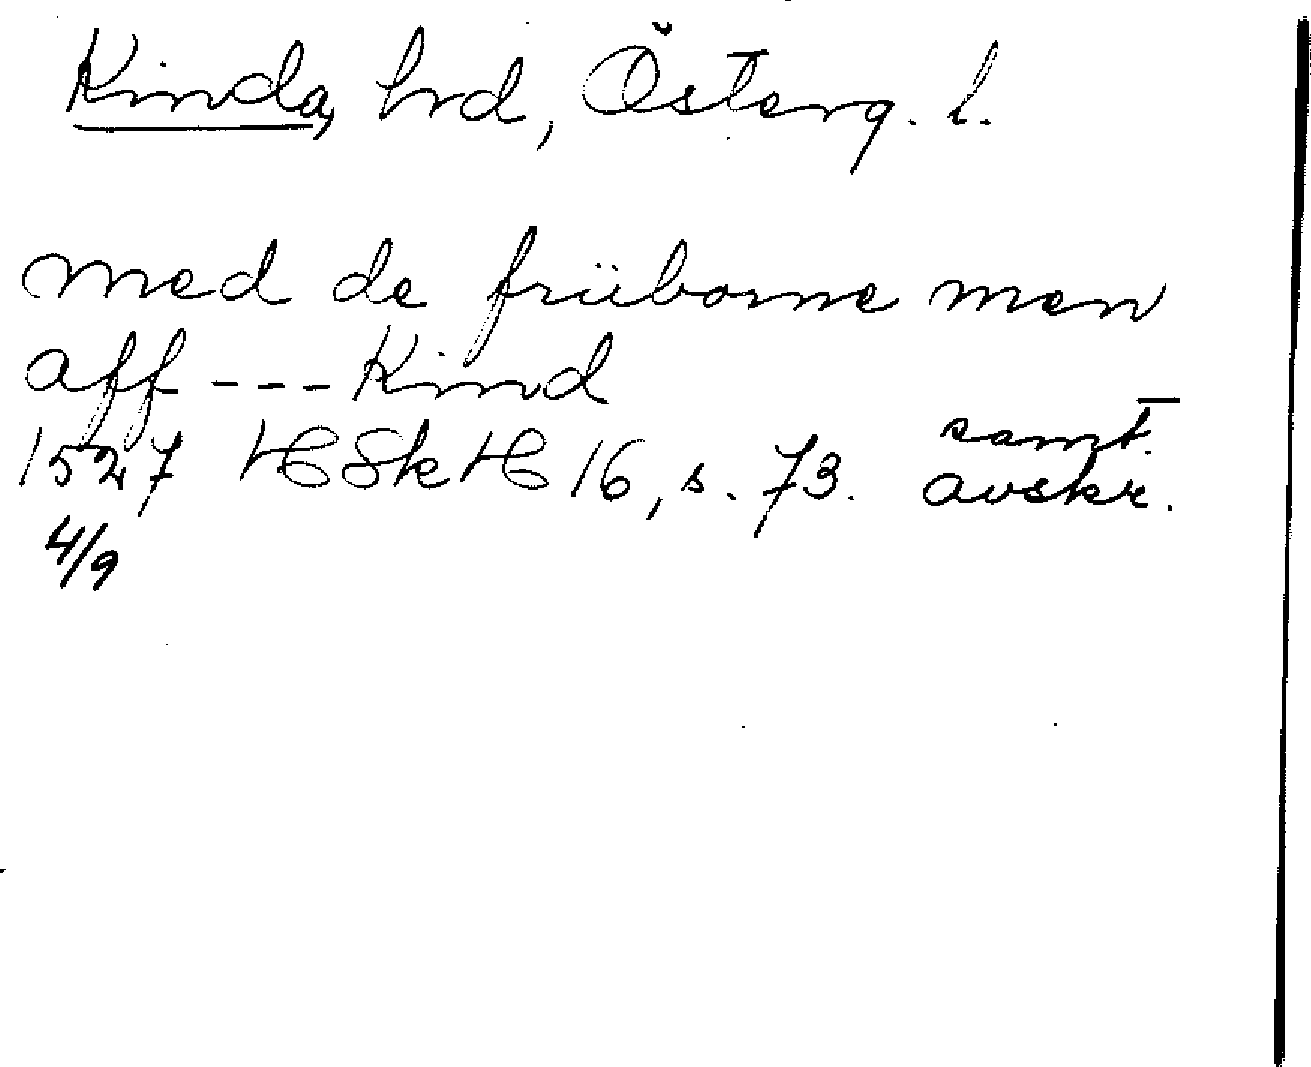 Kinda, hrd, Österg. l.
med de früborne men
aff --- Kind
1527 HSkH 16, s. 73. samt. avskr.
4/9